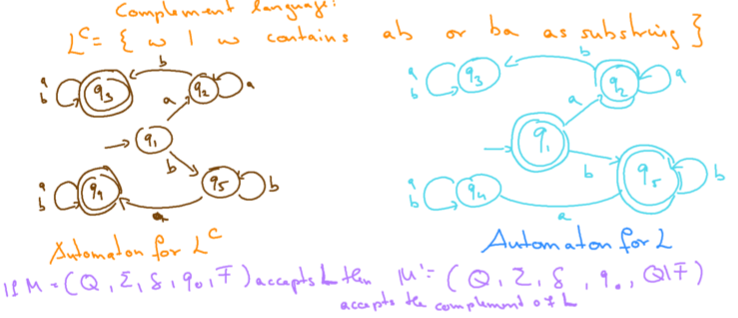 Complement language:
L^C = { w | w contains ab or ba as substring }
a
b
q3
b
q2
a
a
q1
b
a
b
q4
a
q5
b
a
b
q3
b
q2
a
a
q1
b
a
b
q4
a
q5
b
Automaton for L^C
Automaton for L
If M = (Q, Σ, δ, q0, F) accepts L then M' = (Q, Σ, δ, q0, Q\F)
accepts the complement of L